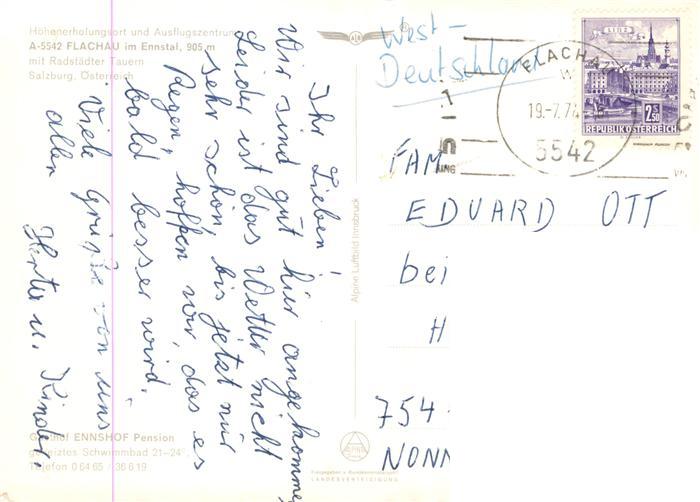 Höhenerholungsort und Ausflugszentrum
A-5542 FLACHAU im Ennstal, 905 m
mit Radstädter Tauern
Salzburg, Österreich
Ihr Lieben!
Wir sind gut hier angekommen,
Leider ist das Wetter nicht
sehr schön, bis jetzt nur
Regen, hoffen wir, das es
bald besser wird.
Viele Grüße von uns
allen
Herta u. Kinder.
Gasthof ENNSHOF Pension
geheiztes Schwimmbad 21-24°
Telefon 0 64 65 / 36 6 19
Alpine Luftbild Innsbruck
ALPINE
LANDESVERTEIDIGUNG
West-
Deutschland
LINZ
2.50
REPUBLIK ÖSTERREICH
FLACHAU
19.-7.74
5542
FAM
EDUARD OTT
bei
H
754
NONN